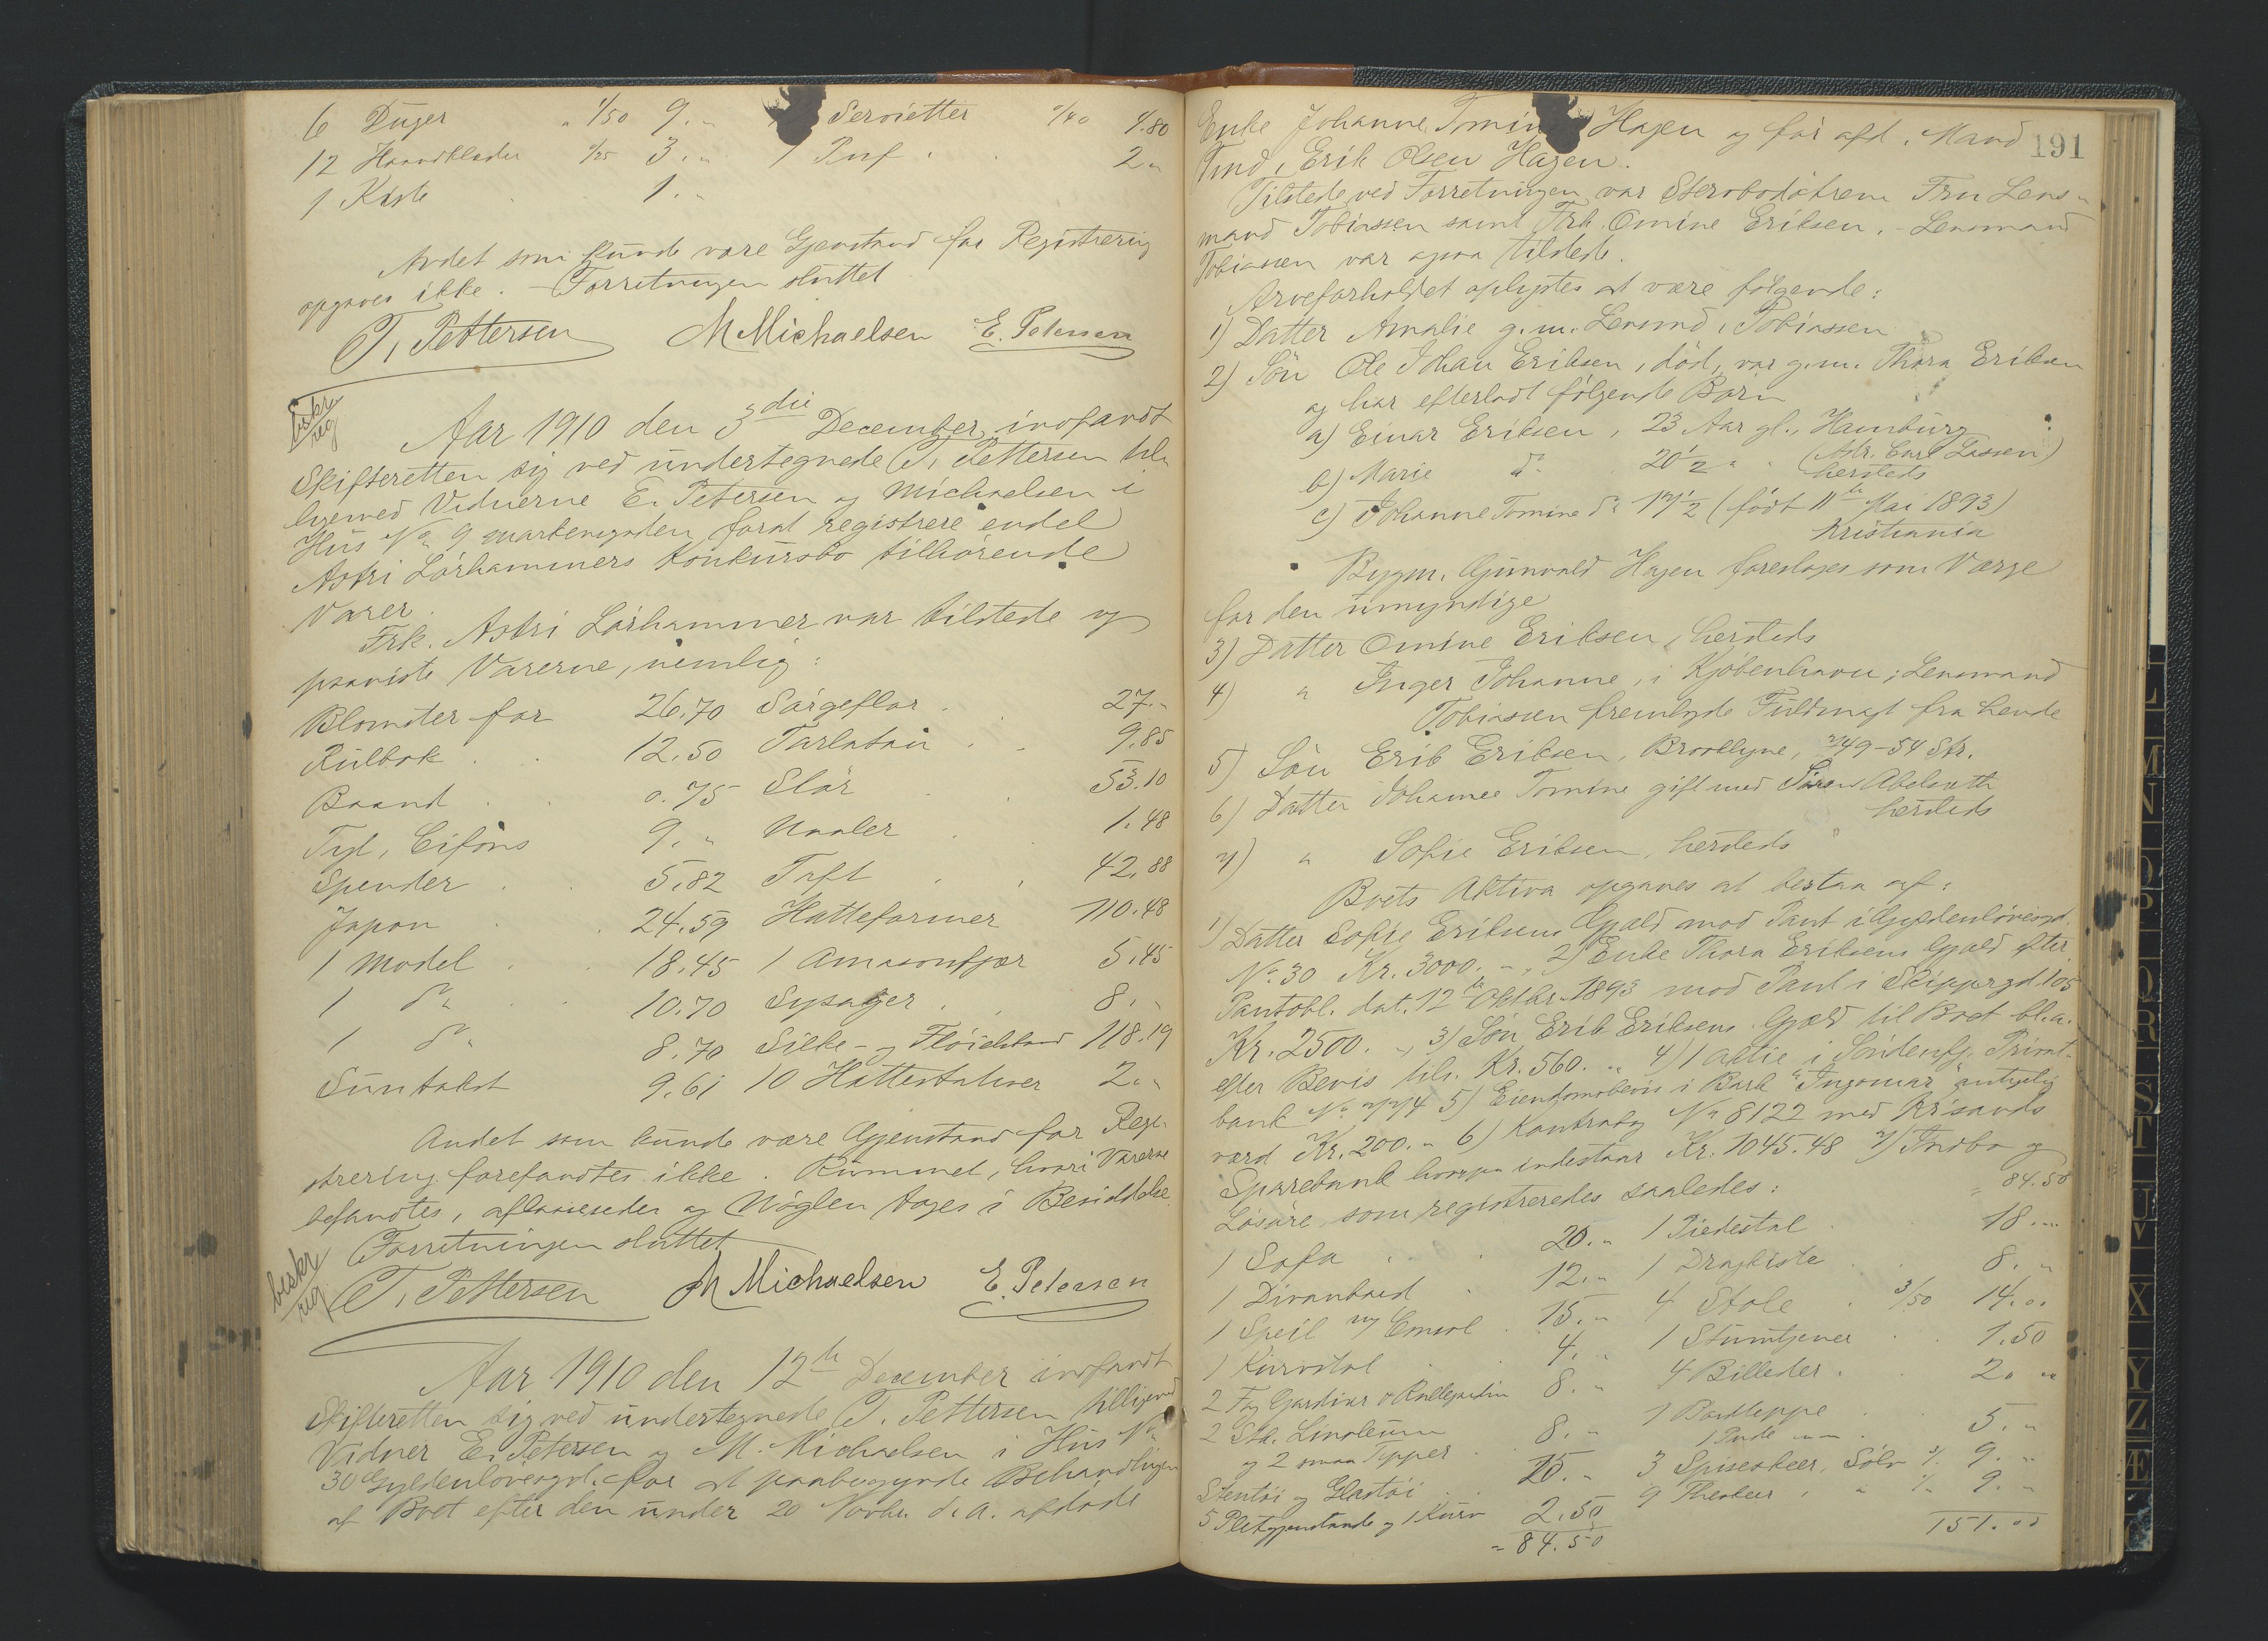 6 Duger " 1/50 9." Servietter "/40 4.80
12 Haandklæder "/25 3." 1 Puf . 2 "
1 Kiste 1."
Andet som kunde være Gjenstand for Registrering
opgaves ikke. – Forretningen sluttet
T. Pettersen M Michaelsen E. Petersen
beskr
Aar 1910 den 3die December indfandt
Skifteretten sig ved undertegnede T. Pettersen til-
ligemed Vidnerne E. Petersen og Michaelsen i
Hus No 9 Markensgaden forat registrere endel
Astri Lörhammers Konkursbo tilhörende
Varer.
Frk. Astri Lörhammer var tilstede og
paaviste Varerne, nemlig:
Blomster for 26.70 Sörgeflor . 27."
Rülbak . . 12.50 Tarlatan . . 9.85
Baand . . 0.75 Slör . 53.10
Tyl, Cifons 9." Naaler . 1.48
Spender . . 5.82 Taft . . 42.88
Japon . . 24.59 Hatteformer 110.48
1 Model . . 18.45 1 Amasonfjær 5.45
1 do . . 10.70 Sysager . . 8."
1 do 8.70 Silke- og Flöielsbaand 118.19
Suntakst 9.61 10 Hattestativer 2."
Andet som kunde være Gjenstand for Regi-
strering forefandtes ikke. Rummet, hvori Varerne
befandtes, aflaasedes og Nöglen toges i Besiddelse.
Forretningen sluttet
beskr
T. Pettersen M Michaelsen E. Petersen
Aar 1910 den 12te December indfandt
Skifteretten sig ved undertegnede T. Pettersen tilligemed
Vidner E. Petersen og M. Michaelsen i Hus No
30 Gyldenlövesgd. for at paabegynde Behandlingen
af Boet efter den under 20 Novbr. d. A. afdöde
191
Enke Johanne Tomin Hagen og for afd. Mand
Tmd. Erik Olsen Hagen.
Tilstede ved Forretningen var Sterbodötrene Fru Lens-
mand Tobiassen samt Frk. Omine Eriksen. – Lensmand
Tobiassen var ogsaa tilstede.
Arveforholdet oplystes at være fölgende:
1) Datter Amalie g.m. Lensmd. Tobiassen
2) Sön Ole Johan Eriksen, död, var g.m. Thora Eriksen
og har efterladt fölgende Börn
a) Einar Eriksen, 23 Aar gl., Hamburg
(Adr. Carl Lassen)
b) Marie do 20 1/2 " " hersteds
c) Johanne Tomine do 17 1/2 (född 11te Mai 1893)
Kristiania
Bygm. Gunvald Hagen foreslages som Værge
for den umyndige
3) Datter Omine Eriksen, herSteds
4) " Inger Johanne, i Kjöbenhavn; Lensmand
Tobiassen fremlagde Fuldmagt fra hende
5) Sön Erik Eriksen, Brooklyne, 749-54 Str.
6) Datter Johanne Tomine gift med Sören Abelseth
herSteds
7) " Sofie Eriksen, herSteds
Boets Aktiva opgaves at bestaa af:
1) Datter Sofie Eriksens Gjæld mod Pant i Gyldenlövesgd.
No 30 Kr. 3000. –, 2) Enke Thora Eriksens Gjæld efter
Pantobl. dat. 12te Oktbr. 1893 mod Pant i Skippergd. 105
Kr. 2500. –, 3) Sön Erik Eriksens Gjæld til Boet bl.a.
efter Bevis tils. Kr. 560. " 4) 1 Aktie i Söndenfj. Privat-
bank No 7774 5) Eiendomsbevis i Bark "Ingomar" antagelig
værd Kr. 200. " 6) Kontrabog No 8122 med Kr.sands
Sparebank hvorpaa indestaar Kr. 1045.48 7) Indbo og
Lösöre som registreredes saaledes: = 84.50
1 Sofa . . . 20." 1 Piedestal . 18."
1 Divanbord . 12." 1 Dragkiste . . 8."
1 Speil m/ Consol . 15." 4 Stole . 3/50 14.00
1 Kurvstol . . 4." 1 Stumtjener . . 1.50
2 Fag Gardiner o Rullegardin 8." 4 Billeder . 2."
2 Stk. Linoleum 1 Bordteppe
og 2 smaa Tepper . 8." 1 Pude . 5."
Stentöi og Glastöi . 15." 3 Spiseskeer, Sölv 3/. 9."
5 Pletgjenstande og 1 Kurv 2.50 9 Theskeer, " 1/. 9."
= 84.50 151.00